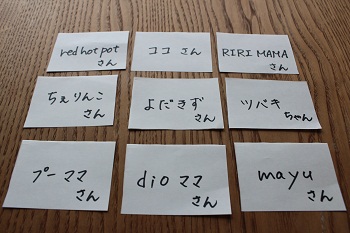 red hot pot
さん
ココ さん
RIRI MAMA
さん
ちぇりんこ
さん
よだきず
さん
ツバキ
ちゃん
プーママ
さん
dioママ
さん
mayu
さん